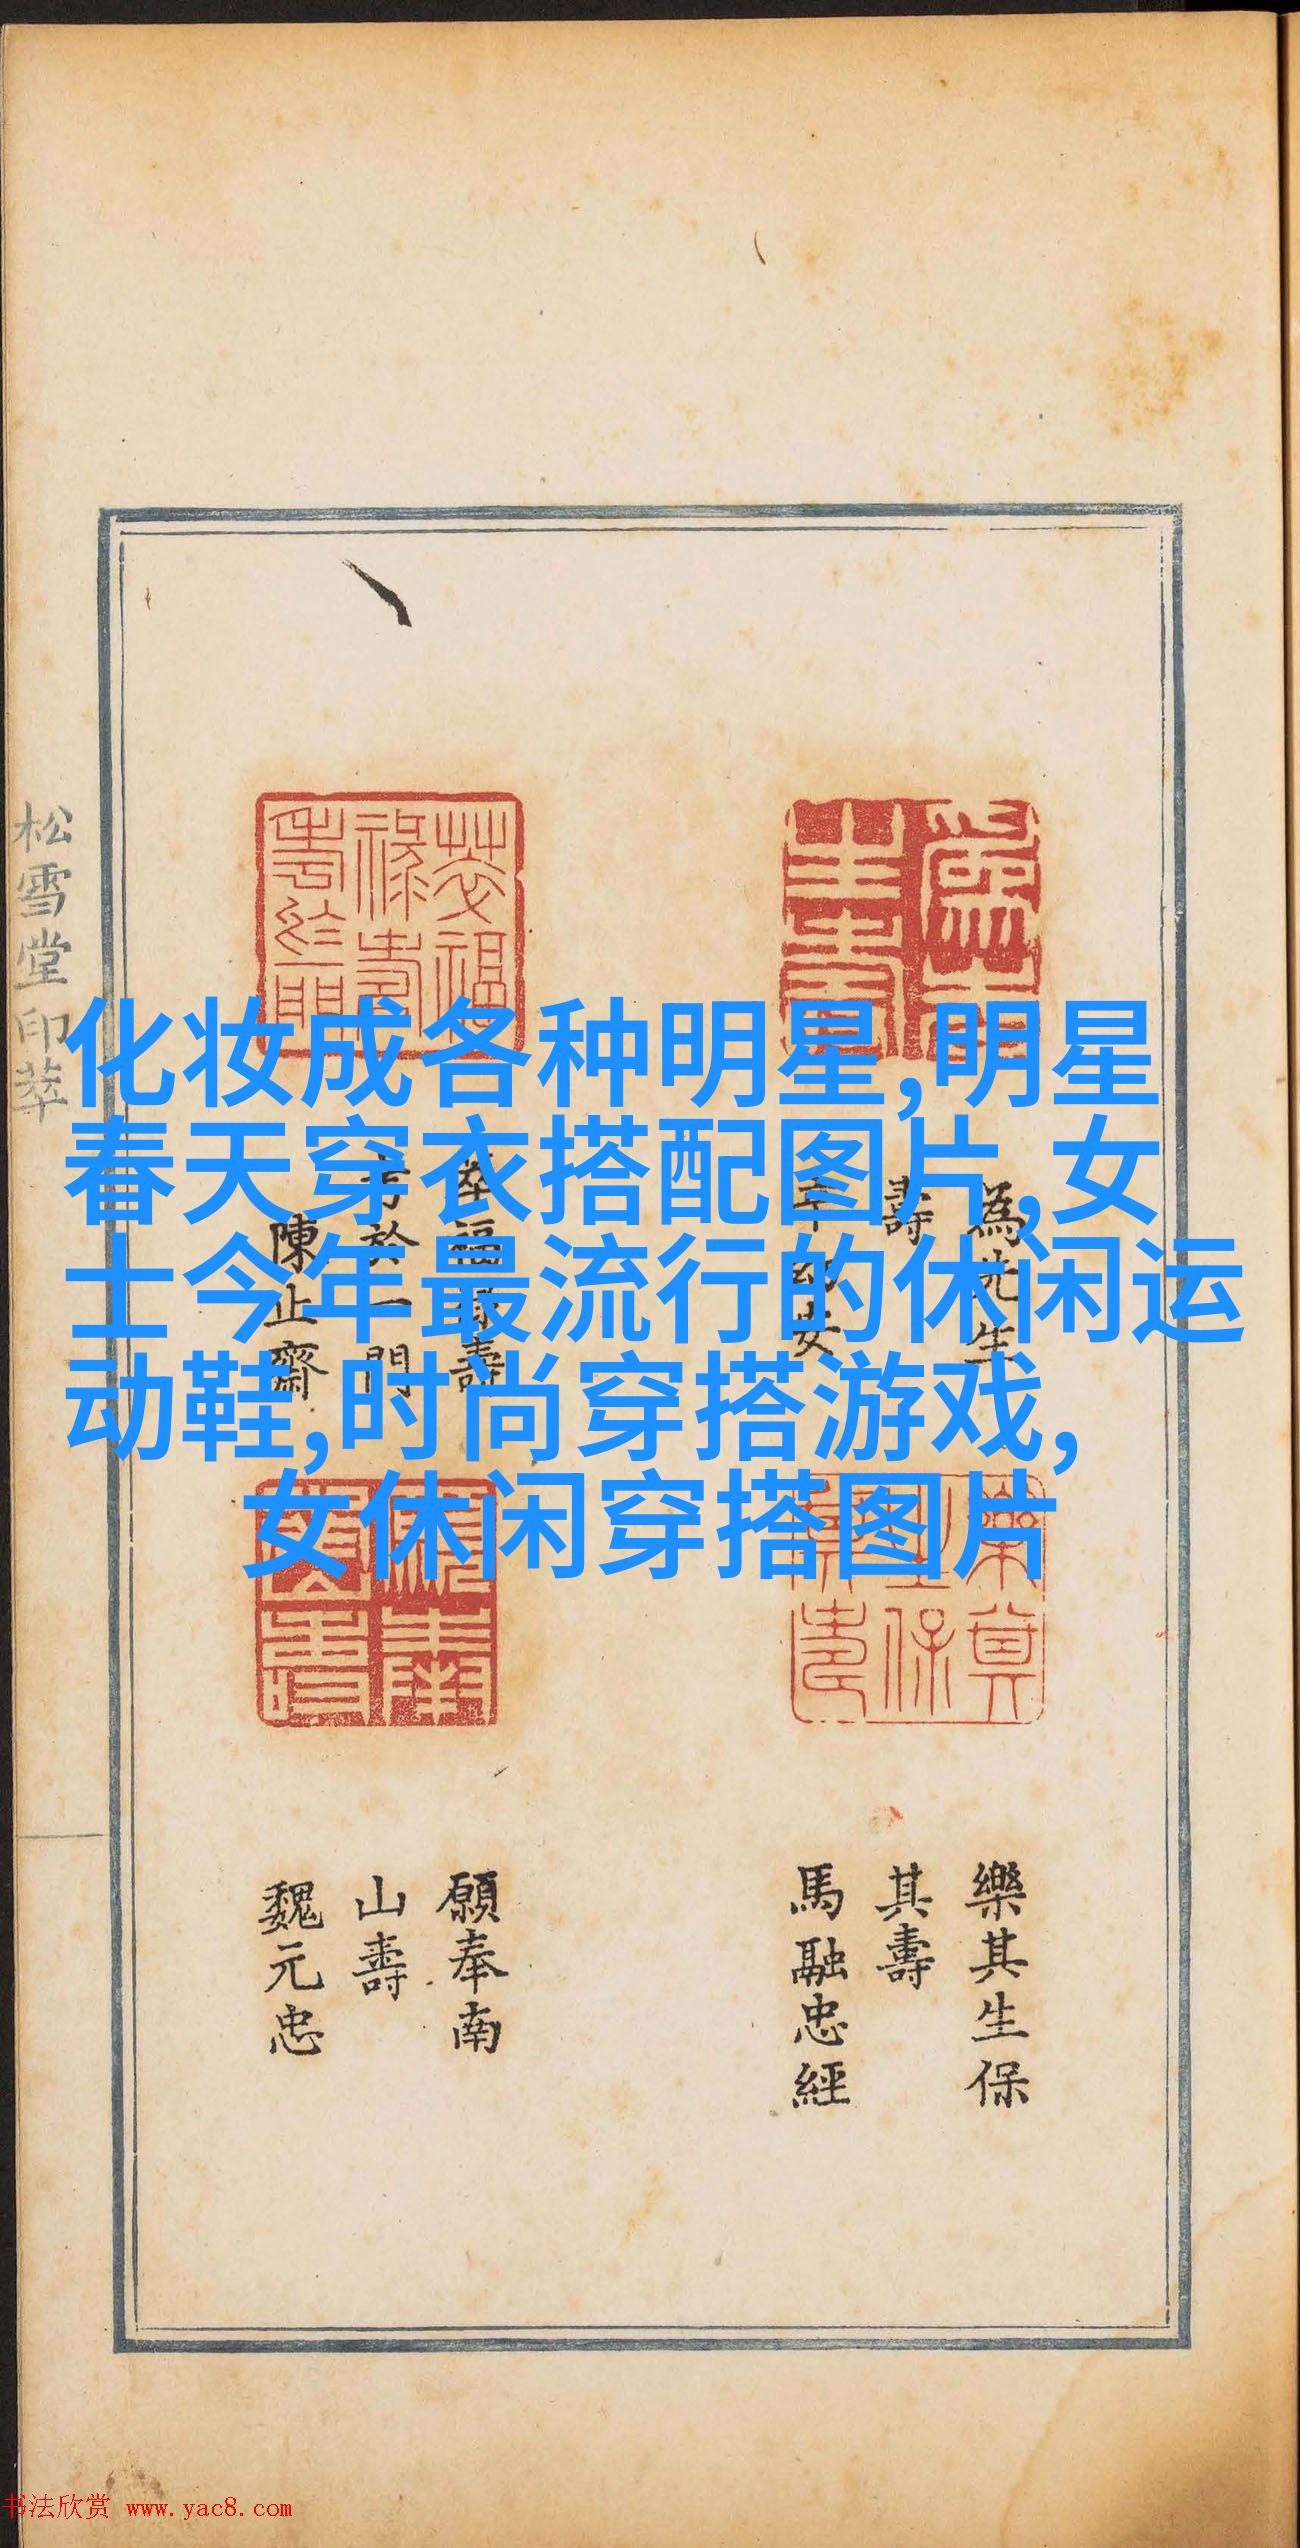 化妆成各种明星,明星
春天穿衣搭配图片,女
士今年最流行的休闲运
动鞋,时尚穿搭游戏,
女休闲穿搭图片
松雪堂印萃
為先生
壽
萃福祿壽
於一門
陳止齋
樂其生保
其壽
馬融忠經
願奉南
山壽
魏元忠
书法欣赏 www.yac8.com